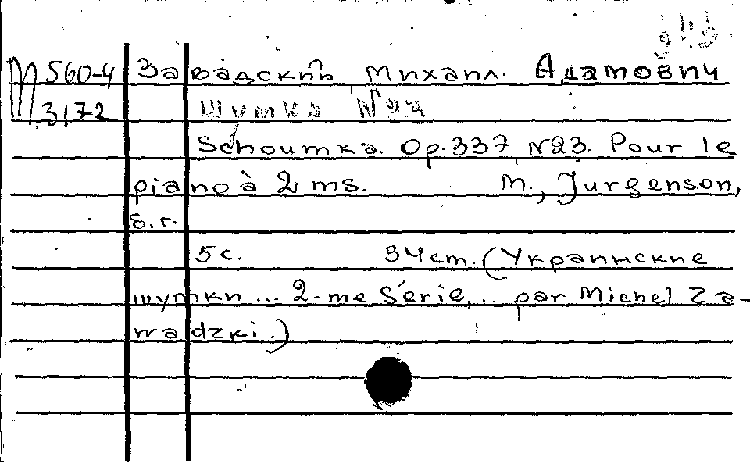 М 560-4 Завадский Михаил Адамович
3172 Шутка N
Schoumka. Op. 337 N23. Pour le
piano à 2 ms. М., Jurgenson,
б.г.
5 с. 34 cm. (Украинские
шутки... 2-me Série... par Michel Za-
wadzki.)